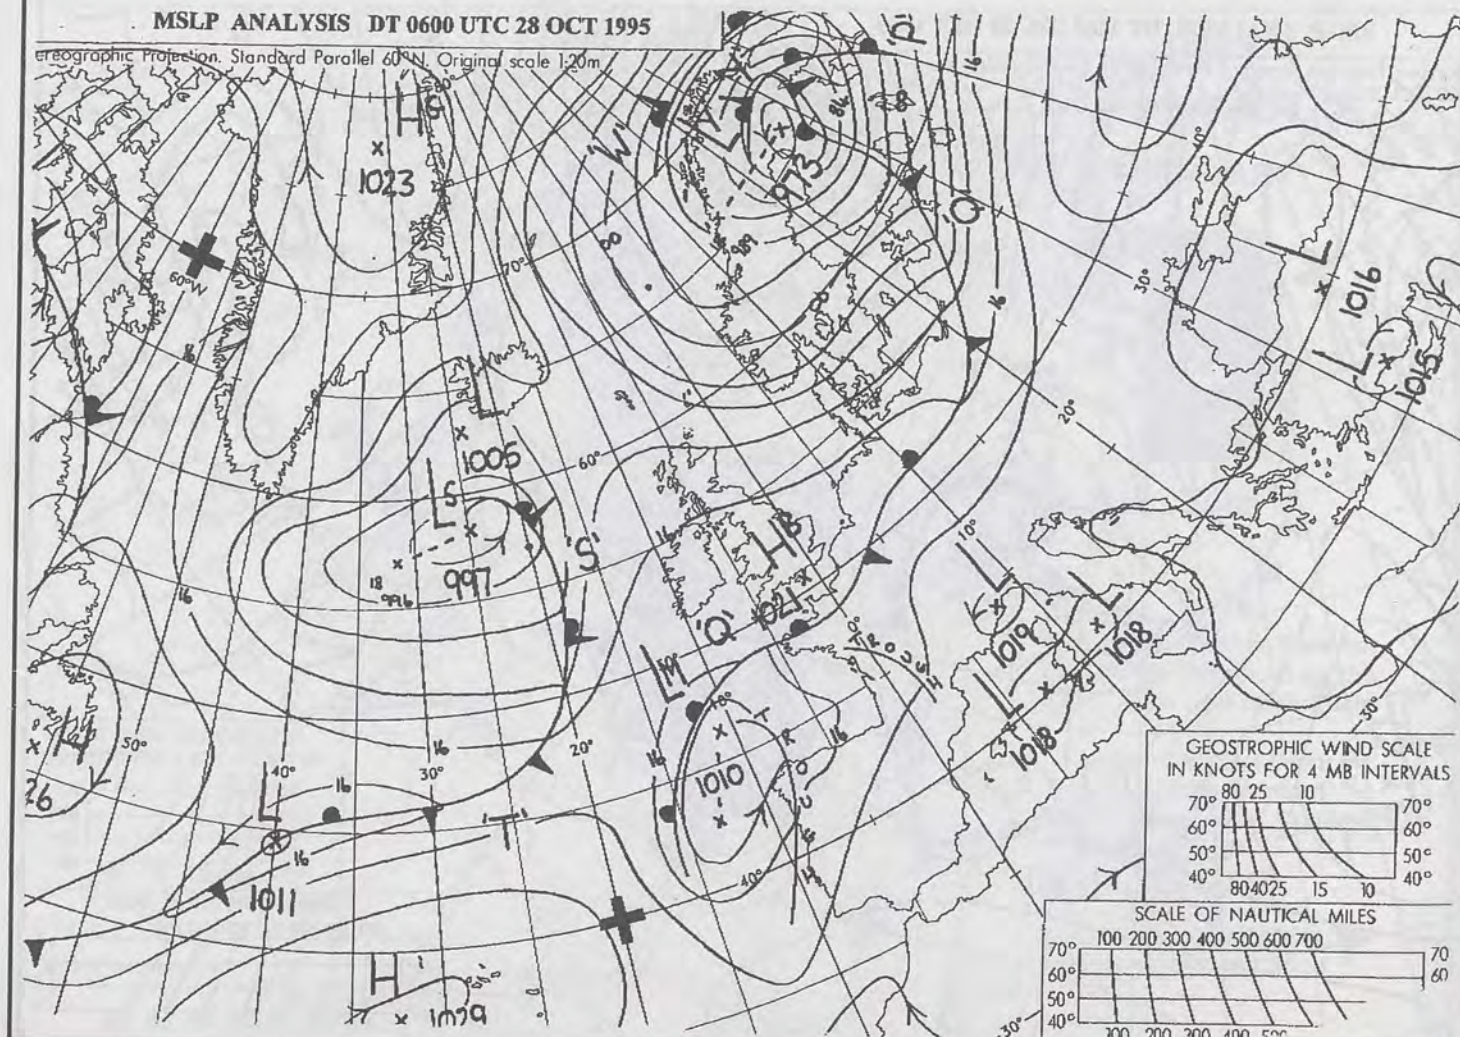 MSLP ANALYSIS DT 0600 UTC 28 OCT 1995
ereographic Projection. Standard Parallel 60°N. Original scale 1:20m
80°
H G
1023
'W'
00
L
973
84
8
'Q'
16
989
'Q'
16
40°
30°
L
1016
L
1015
60°W
70°
16
L
1005
60°
20°
L S
997
18
996
'S'
16
16
H B
1021
'Q'
10°
L
1019
L
1018
L
1018
TROUGH
L M
10°
TROUGH
16
16
1010
50°
H
26
40°
16
30°
16
20°
L
16
1011
'T'
40°
H
1029
0°
30°
30°
GEOSTROPHIC WIND SCALE
IN KNOTS FOR 4 MB INTERVALS
80 25 10
70° 70°
60° 60°
50° 50°
40° 40°
80 40 25 15 10
SCALE OF NAUTICAL MILES
100 200 300 400 500 600 700
70° 70
60° 60
50°
40°
100 200 300 400 500